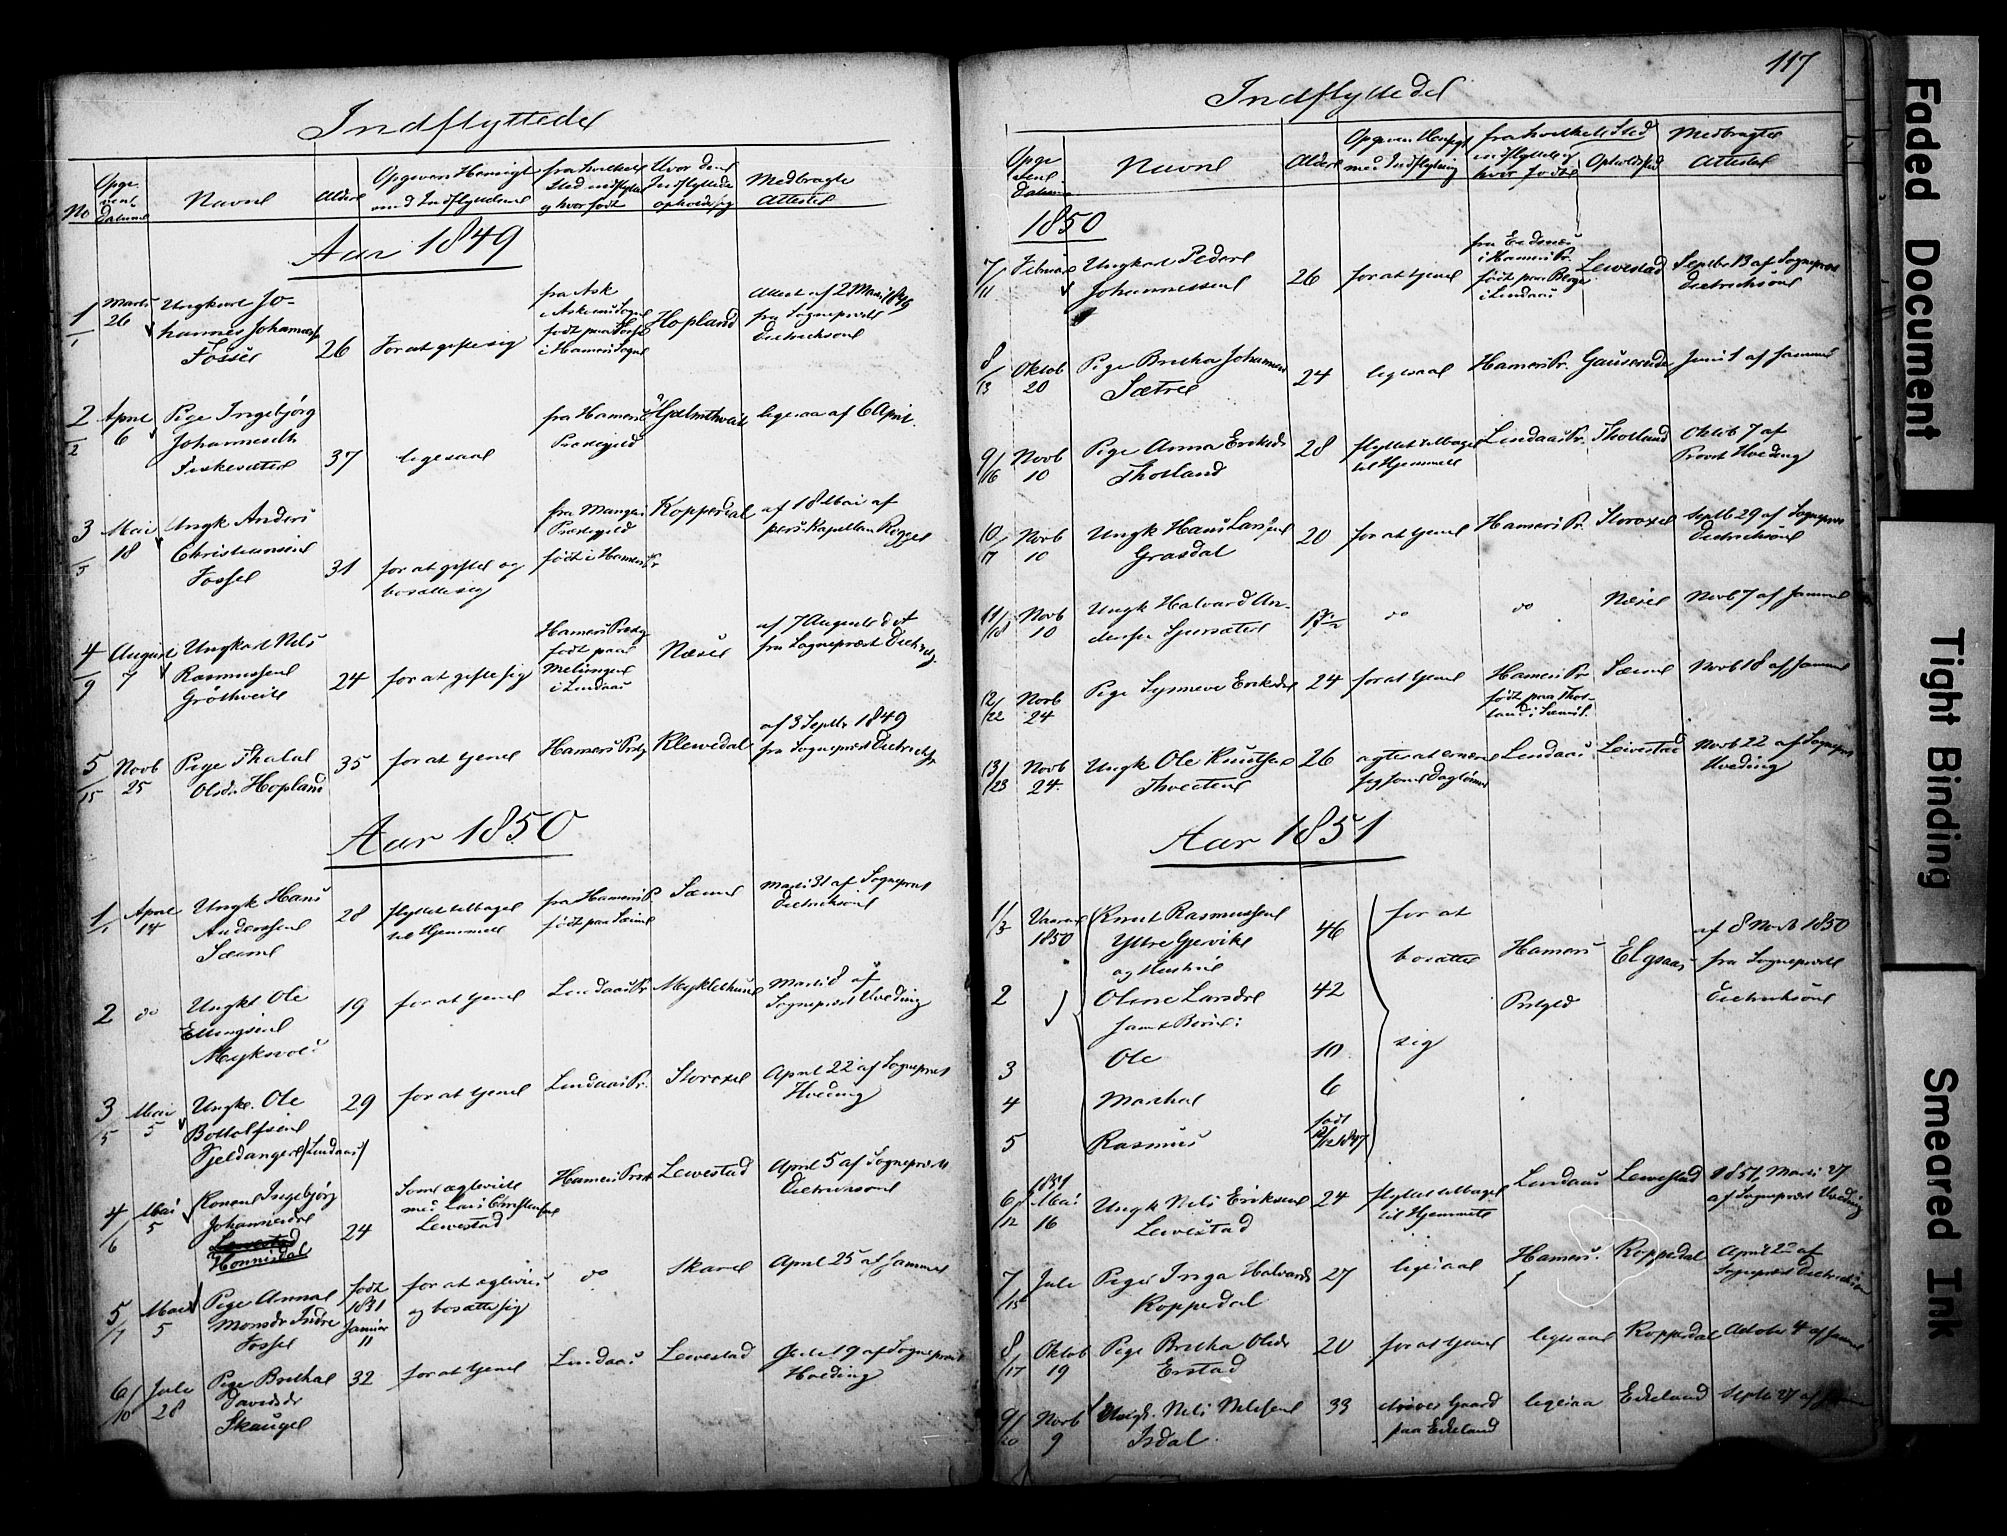 Indflyttede
No
Opgivent Datum
Navne
Alder
Opgiven Hensigt
med Indflyttelsen
fra hvilket
Sted indflyttet
og hvor født
Hvor den
Indflyttede
opholder sig
Medbragte
Attester
Aar 1849
1/1 Marts 26 Ungkarl Jo-
hannes Johannes
Fosse 26 For at gifte sig
fra Ask
født paa Fosse
i Hammers Sogn
Hopland
Attest af 21 Marts 1849
fra Sognepræst
Dietrichson
2/2 April 6 Pige Ingebjørg
Johannesdtr
Fiskesæter 37 ligesaa
fra Hammers
Præstegjeld
Hjelmtveit
lige saa af 6 April
3/5 Mai 18 Ungk Anders
Christiansen
Fosse 31 for at gifte og
bosætte sig
fra Manger
Præstegjeld
født i Hammers Pr
Koppedal
af 18 Mai af
pers. Kapellan Rogge
4/9 August 7 Ungkarl Nels
Rasmussen
Grøthveit 24 for at gifte sig
Hammers Prestg
født paa
Melingen
i Lindaas
Næse
af 7 August d. A.
fra Sognepræst Dietrichs.
5/15 Novb 25 Pige
Olsdr Hopland 35 for at tjene Hammers Prstg Klevedal
af 3 Septbr 1849
fra Sognepræst Dietrichs.
Aar 1850
1/1 April 14 Ungk Hans
Anderssen
Sæim 28 flyttet tilbage
til Hjemmet
fra Hammers P.
født paa Sæim
Sæim
Marts 31 af Sognepræst
Dietrichson
2 do Ungk Ole
Ellingsen
Mykevol 19 for at tjene Lindaas Pr Mykletun
Marts 8 af
Sognepræst Hveding
3/5 Mai 5 Ungk. Ole
Bottolfsen
Fjeldanger (Lindaas) 29 for at tjene Lindaas Pr. Storoxe
April 22 af Sognepræst
Hveding
4/6 Mai 5 Konen Ingebjørg
Johannesdr
Levestad
Honnisdal 24
Som ægteviet
med Lars Christensen
Levestad
Hammers Prst Levestad
April 5 af Sognepræst
Dietrichson
5/7 Mai 5 Pige Anna
Monsdr Indre
Fosse
født
1831
Januar
11
for at ægtevies
og bosætte sig
do Skare April 25 af samme
6/10 Juli 28 Pige Brithe
Davidsdr
Skauge 32 for at tjene Lindaas Levestad
9 af Sognepræst
Hveding
117
Indflyttede
Opgivent
Datum
Navne
Alder
Opgiven Hensigt
med Indflytning
fra hvilket Sted
indflyttet og
hvor født
Opholdssted
Medbragte
Attester
1850
7/11 Februar Ungkarl Peder
Johannessen 26 for at tjene
fra Eidsnes
i Hammers Pr.
født paa Berge
i Lindaas
Levestad
Septbr 13 af Sognepræst
Dietrichson
8/13 Oktob 20 Pige Brithe Johannesd
Sætre 24 ligesaa Hammers Pr. Juni 1 af samme
9/16 Novb 10 Pige Anna Eriksdr
Thotland 28 flyttet tilbage
til Hjemmet
Lindaas Pr. Thotland
Oktob 7 af
Provst Hveding
10/17 Novb 10 Ungk Hans Larssen
Grasdal 20 for at tjene Hammers Pr. Storoxe
Septb 29 af Sognepræst
Dietrichson
11/18 Novb 10 Ungk Halvard An-
dersen do do Næse Novb 7 af samme
12/22 Novb 24 Pige Synneve Eriksdr 24 for at tjene
Hammers Pr
født paa Thot-
land i Sæim S.
Sæim Novb 18 af samme
13/23 Novb 24 Ungk Ole Knutsen
Thveiten 26 agter at ernære
sig som Dagløner
Lindaas Levestad
Novb 22 af Sognepræst
Hveding
Aar 1851
1/3 Vaaren 1850 Knut Rasmussen
Yttre Gjervik 46
og Hustrue
2 Olene Larsdr 42
samt Børn:
3 Ole 10
4 Marthe 6
5 Rasmus født 12/12 1847
for at
bosætte
sig
Hammers
Prstgld
Elgsaas
af 8 Novb 1850
fra Sognepræst
Dietrichson
6/12 1851 Mai 16 Ungk Nils Eriksen
Levestad 24 flyttet tilbage
til Hjemmet
Lindaas Levestad
1851, Marts 27
af Sognepræst Hveding
7/15 Juli Pige Inga Halvardsd
Koppedal 27 ligesaa Hammers Koppedal
April 22 af
Sognepræst Dietrichson
8/17 Oktob 19 Pige Brithe Olsdr
Erstad 20 for at tjene ligesaa Koppedal Octobr 4 af samme
9/20 Novb 9 Ungk. Nils Nilssen
Isdal 33 Gaard
paa Eikeland
ligesaa Eikeland Septb 27 af samme
Faded Document
Tight Binding
Smeared Ink